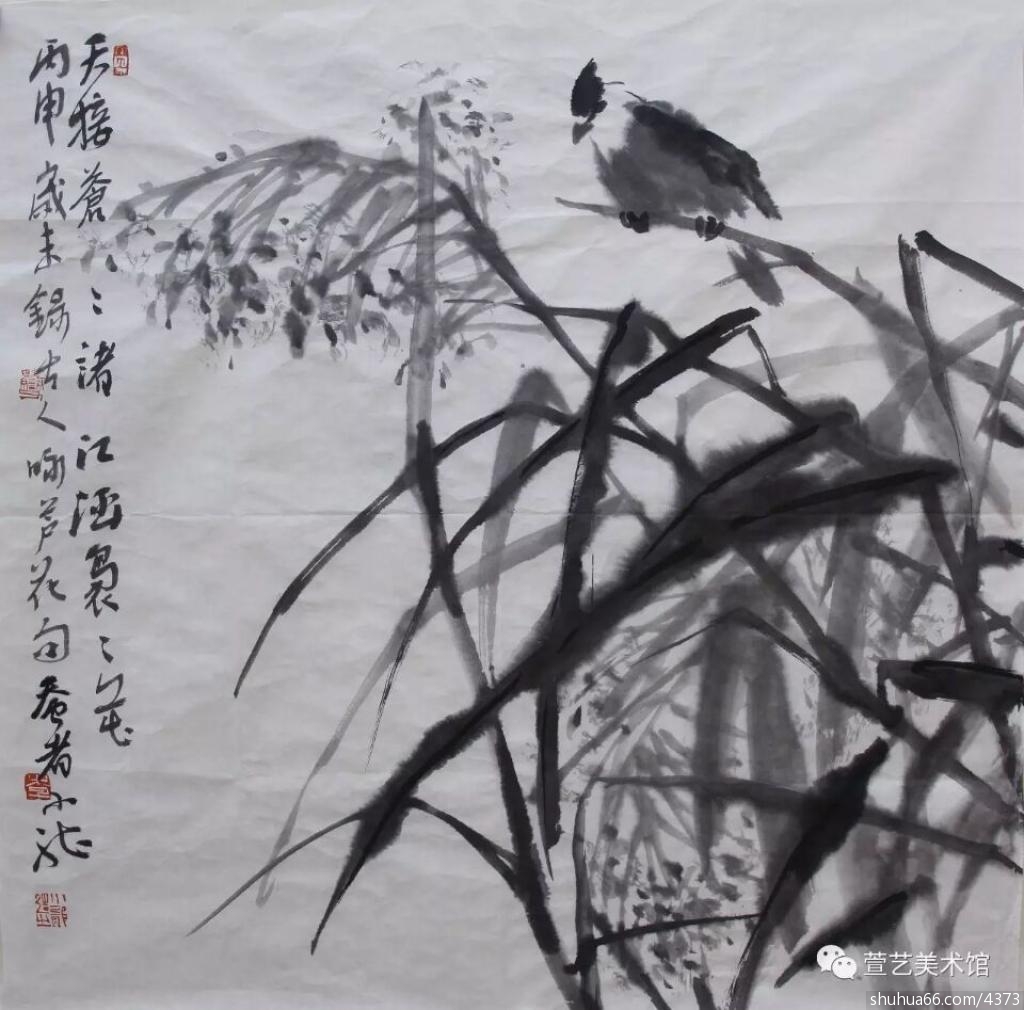 天接蒼〻渚江涵裊〻花
丙申歲末錄古人咏芦花句者小龙
萱艺美术馆
shuhua66.com/4373